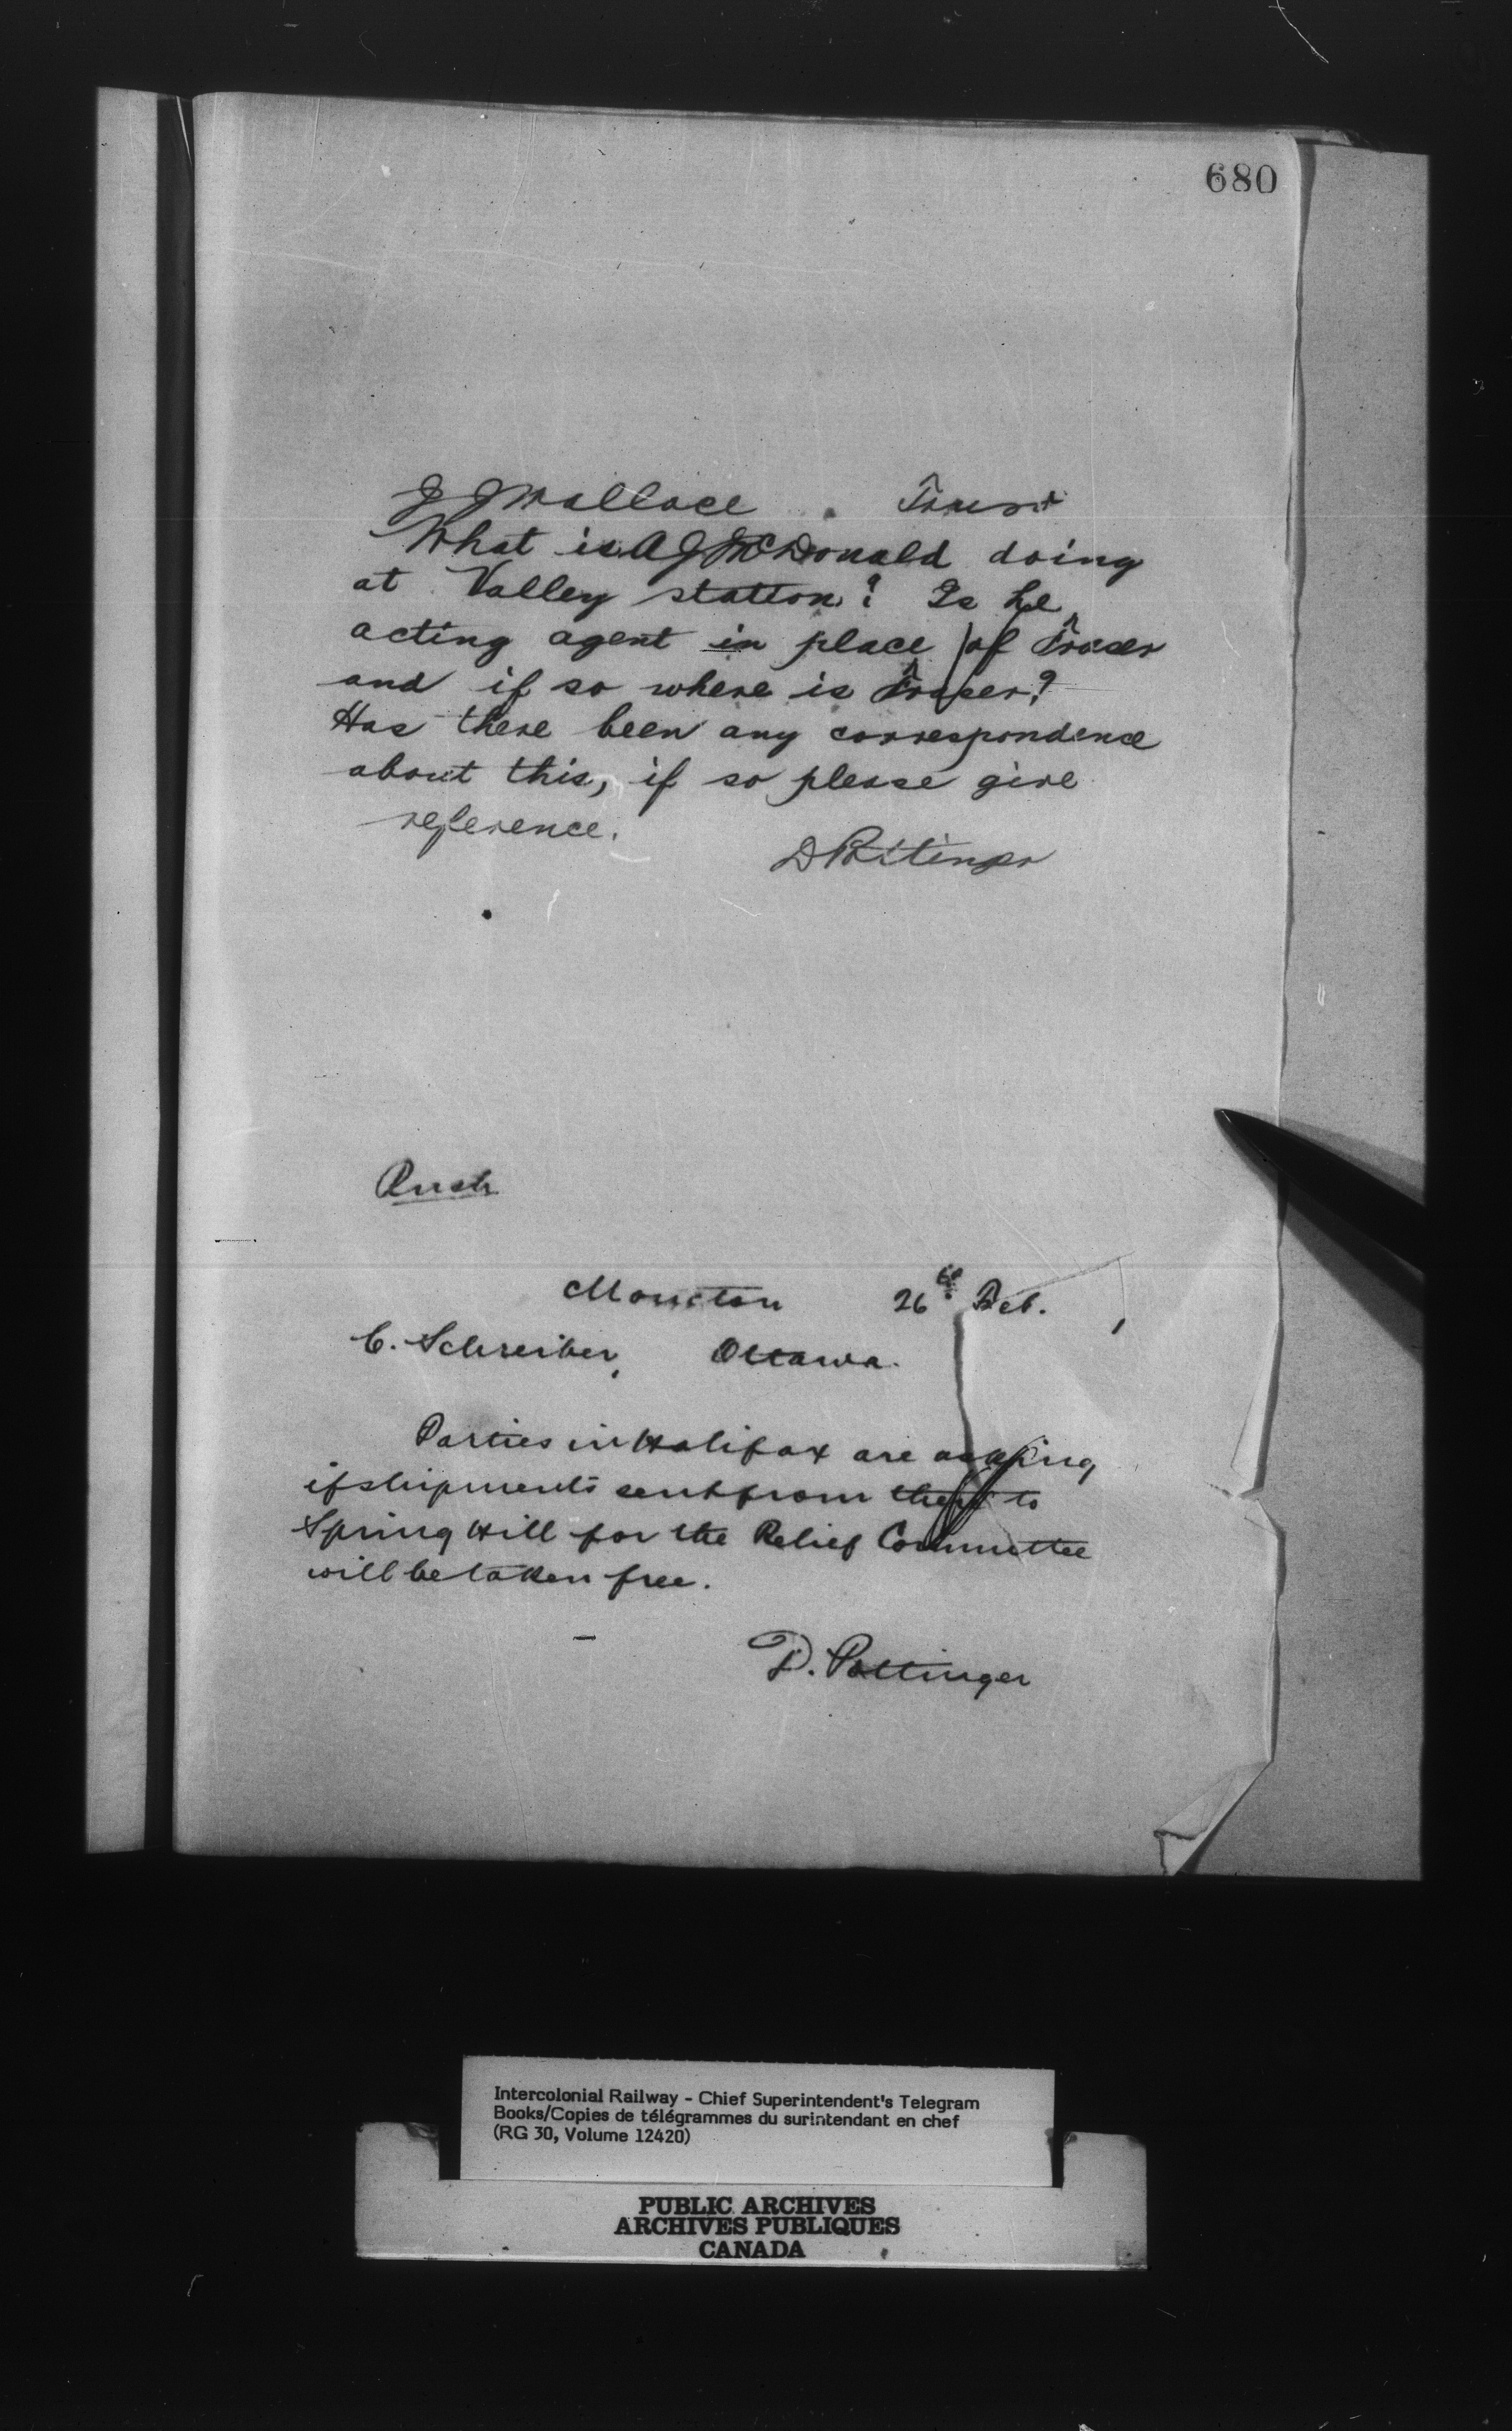 680
J J Wallace
What is A J McDonald doing
at Valley station? Is he
acting agent in place of Fraser
and if so where is Fraser?
Has there been any correspondence
about this, if so please give
reference.
D Pottinger
Rush
Moncton 26th Feb.
C. Schreiber, Ottawa.
Parties in Halifax are asking
if shipments sent from there to
Spring Hill for the Relief Committee
will be taken free.
D. Pottinger
Intercolonial Railway - Chief Superintendent's Telegram
Books/Copies de télégrammes du surintendant en chef
(RG 30, Volume 12420)
PUBLIC ARCHIVES
ARCHIVES PUBLIQUES
CANADA